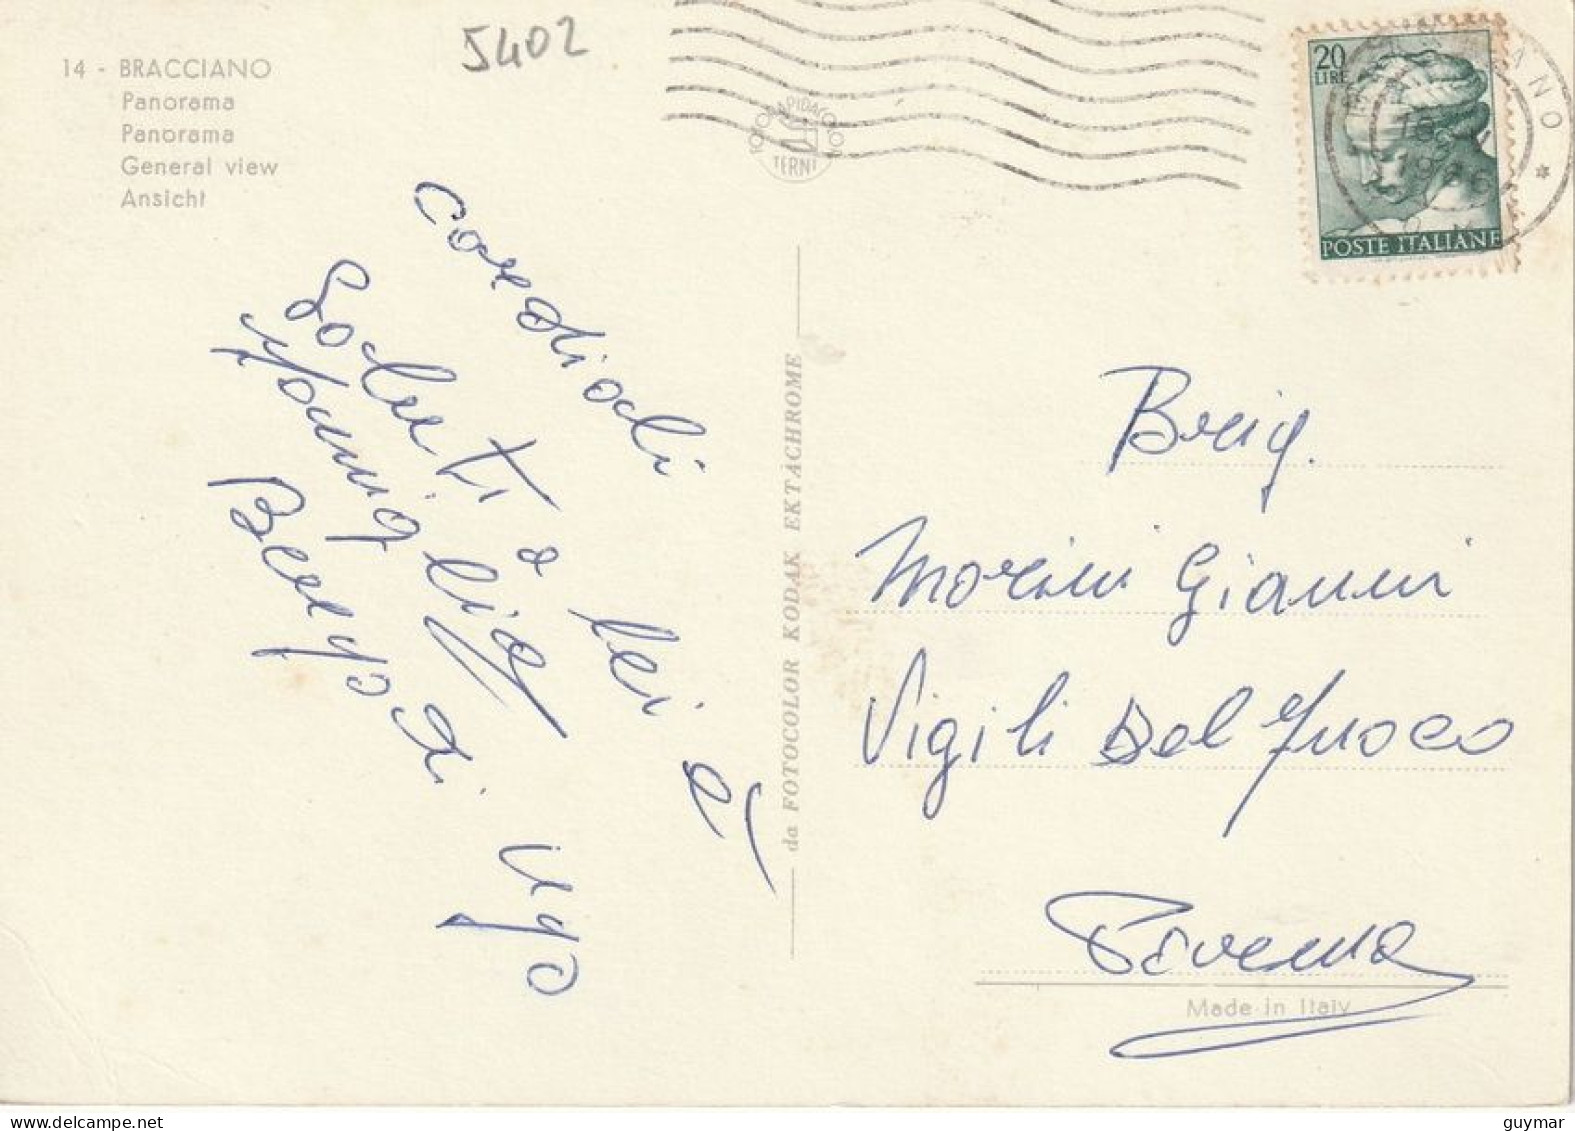 5402
14 - BRACCIANO
Panorama
Panorama
General view
Ansicht
FOTORAPIDACOLOR
TERNI
20
LIRE
POSTE ITALIANE
cordiali
Saluti a lei e
famiglia
Ugo
da FOTOCOLOR KODAK EKTACHROME
Brig.
Morini Gianni
Vigili Del Fuoco
Made in Italy
guymar